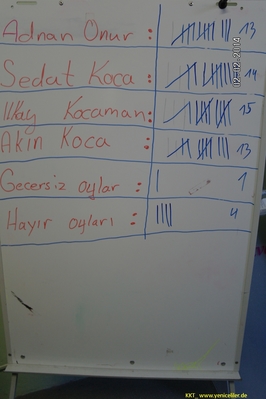 Adnan Onur : 13
Sedat Koca : 14
İlkay Kocaman: 15
Akın Koca : 13
Geçersiz oylar : 1
Hayır oyları : 4
02.02.2014
KKT_www.yeniceliler.de